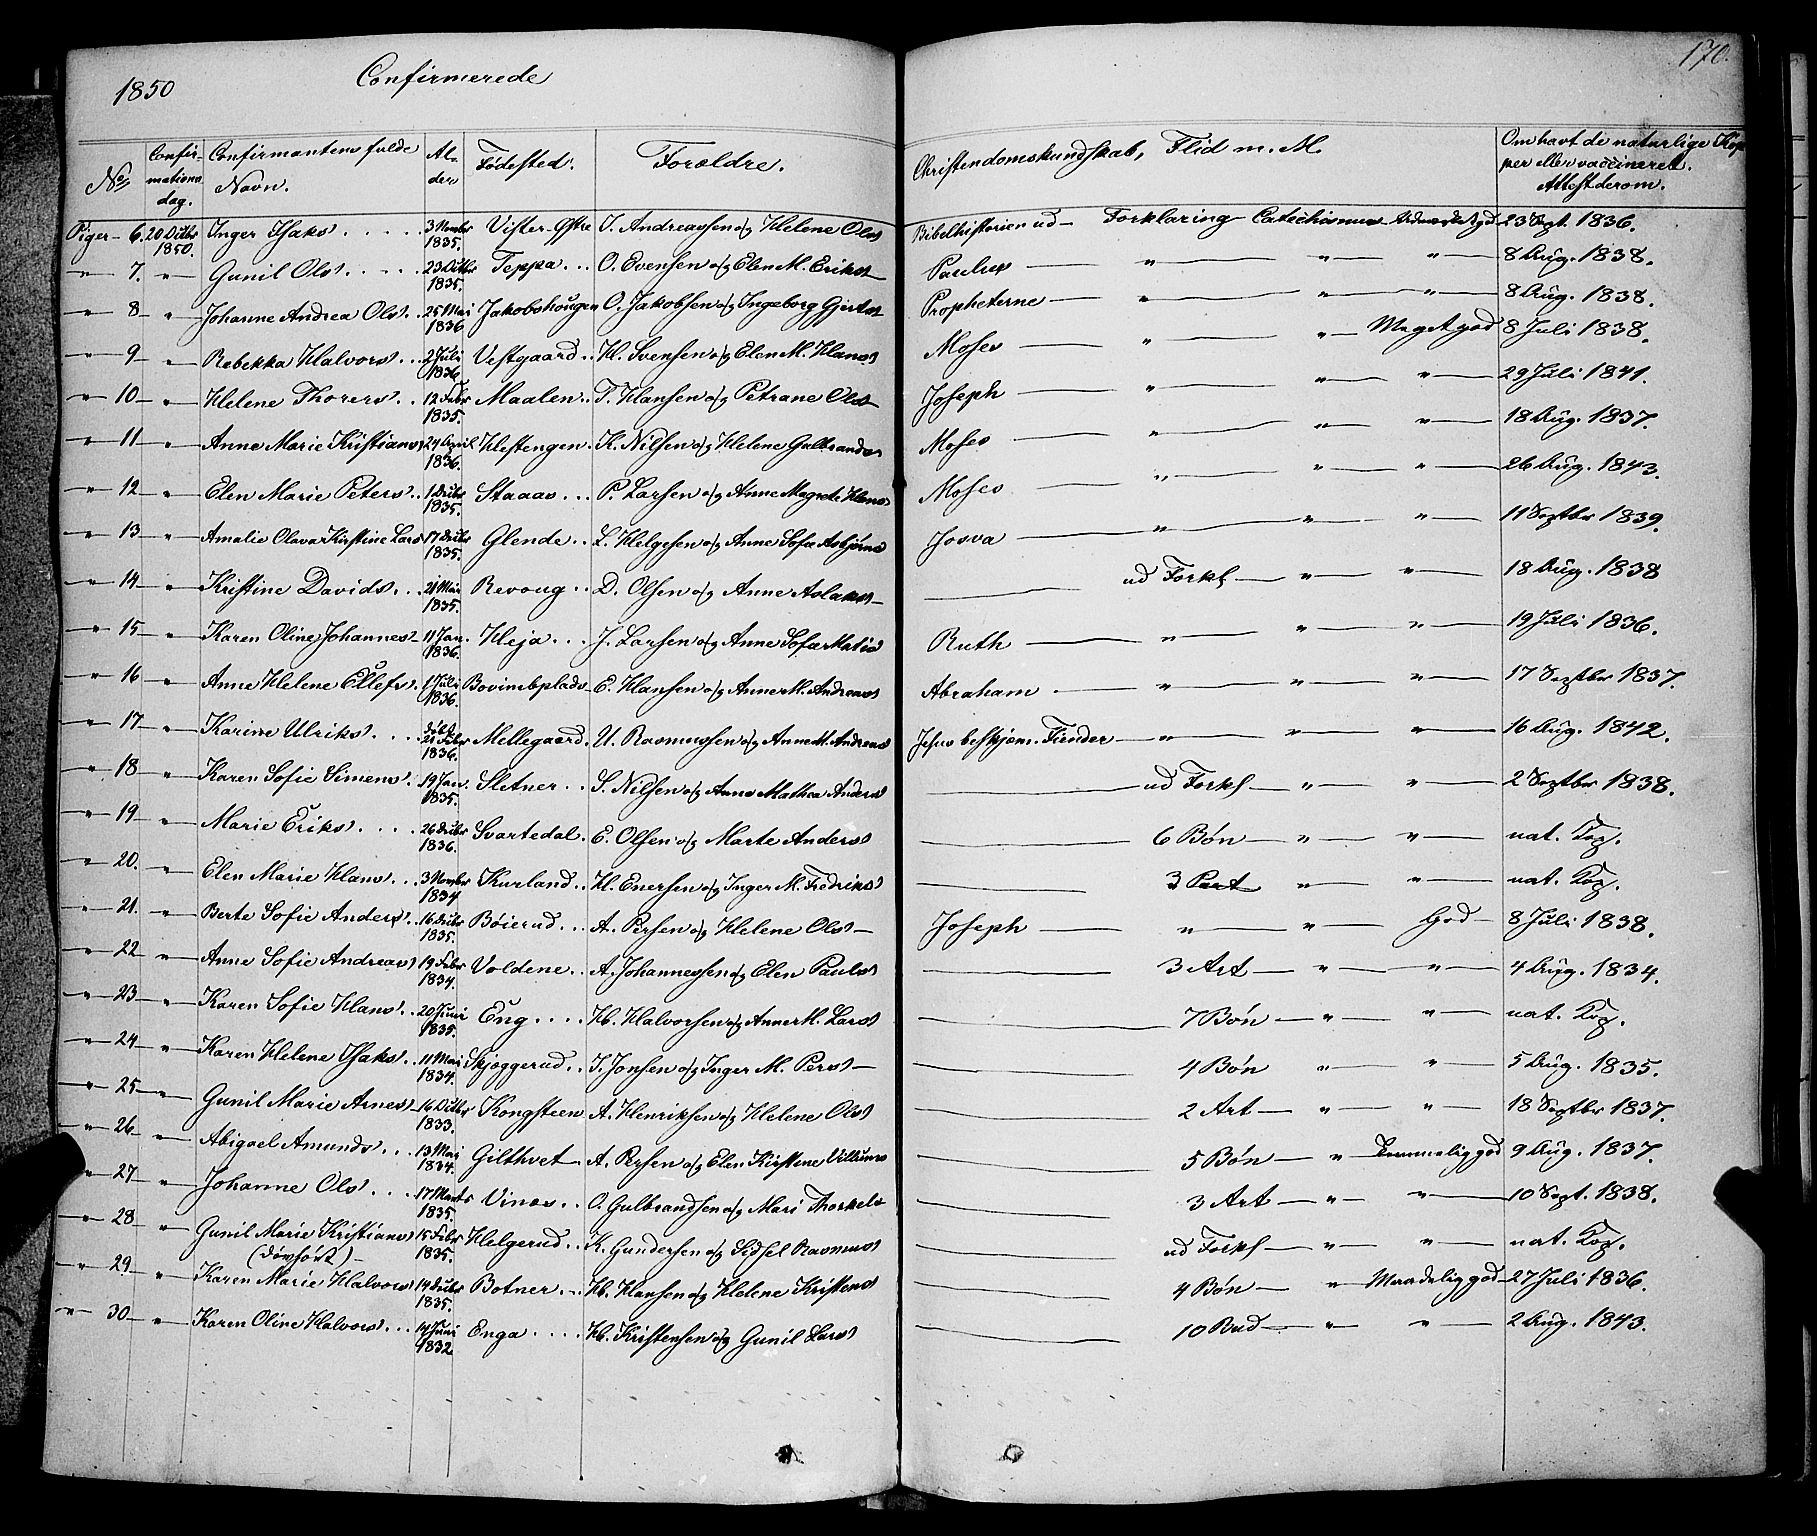 1850 Confirmerede 170.
No Confirmations dag. Confirmantens fulde Navn. Alder Fødested. Forældre. Christendomskundskab, Flid m. M. Om havt de naturlige Kopper eller vaccineret. Attest derom.
Piger 6. 20 Octbr 1850. Inger Isaks 3 Novbr 1835. I. Andreassen og Helene Ols Bibelhistorien ud Forklaring Catechismus 23 Sept. 1836.
" 7. " Gunil Ols 23 Octbr 1835. Teppa O. Evensen og Elen M. Eriks Paulus " " " 8 Aug. 1838.
" 8 " Johanne Andrea Ols 25 Mai 1836 Jakobshougen O. Jakobsen og Ingeborg Gjerts Propheterne " " " 8 Aug. 1838.
" 9 " Rebekka Halvors 2 Juli 1836 Vestgaard H. Svensen og Elen M. Hans Moses " " Meget god 8 Juli 1838.
" 10 " Helene Thorers 12 Febr 1835. Maalen T. Hansen og Petrane Ols Joseph " " " 29 Juli 1841.
" 11 " Anne Marie Kristians 24 April 1836. Hestengen K. Nilsen og Helene Gulbrands Moses " " " 18 Aug. 1837.
" 12 " Elen Marie Peters 1 Octbr 1835. Staaas P. Larsen og Anne Magrete Hans Moses " " " 26 Aug. 1843.
" 13 " Amalie Olava Kirstine Lars 17 Octbr 1835. Glende L. Helgesen og Anne Sofie Asbjørns Josva " " " 11 Septbr 1839.
" 14 " Kristine Davids 21 Mai 1835. Revoug D. Olsen og Anne Aslaks ud Forkl " " 18 Aug. 1838
" 15 " Karen Oline Johannes 11 Jan. 1836. Heja J. Larsen og Anne Sofie Matis Ruth " " " 19 Juli 1836.
" 16 " Anne Helene Ellefs 1 Juli 1836. Bovimsplads E. Hansen og Anne M. Andreas Abraham " " " 17 Septbr 1837.
" 17 " Karine Ulriks døbt 21 Febr 1836. Mellegaard U. Rasmussen og Anne M. Andreas Jesus beskjæm. Fiender " " " 16 Aug. 1842.
" 18 " Karen Sofie Simens 19 Jan. 1835. Sletner S. Nilsen og Anne Mathea Anders ud Forkl " " 2 Septbr 1838.
" 19 " Marie Eriks 26 Octbr 1836. Svartedal E. Olsen og Marte Anders 6 Bøn " " nat. Kop.
" 20. " Elen Marie Hans 3 Novbr 1834 Kurland H. Enersen og Inger M. Fredriks 3 Part " " nat. Kop.
" 21. " Berte Sofie Anders 16 Octbr 1835. Bøierud A. Persen og Helene Ols Joseph " " God 8 Juli 1838.
" 22 " Anne Sofie Andreas 19 Febr 1834. Voldene A. Johannessen og Elen Pauls 3 Art " " 4 Aug. 1834.
" 23 " Karen Sofie Hans 20 Juni 1835. Eng H. Halvorsen og Anne M. Lars 7 Bøn " " nat. Kop.
" 24 " Karen Helene Isaks 11 Mai 1834. Skjøggerud I. Jonsen og Inger M. Pers 4 Bøn " " 5 Aug. 1835.
" 25 " Gunil Marie Arnes 16 Octbr 1833. Kongsteen A. Henriksen og Helene Ols 2 Art " " 18 Septbr 1837.
" 26 " Abigael Amunds 13 Mai 1834. Gilthvet A. Persen og Elen Kirstine Villums 5 Bøn " Temmelig god 9 Aug. 1837.
" 27 " Johanne Ols 17 Marts 1835. Vines O. Gulbrandsen og Mari Thorkels 3 Art " " 10 Sept. 1838.
" 28 " Gunil Marie Kristians (døvhørt) 15 Febr 1835. Helgerud K. Gundersen og Sidsel Rasmus ud Forkl " " nat. Kop.
" 29 " Karen Marie Halvors 14 Octbr 1835. Botner H. Hansen og Helene Kristens 4 Bøn " Maadelig god 27 Juli 1836.
" 30 " Karen Oline Halvors 14 Juni 1832 Enga H. Kristensen og Gunil Lars 10 Bud " " 2 Aug. 1843.